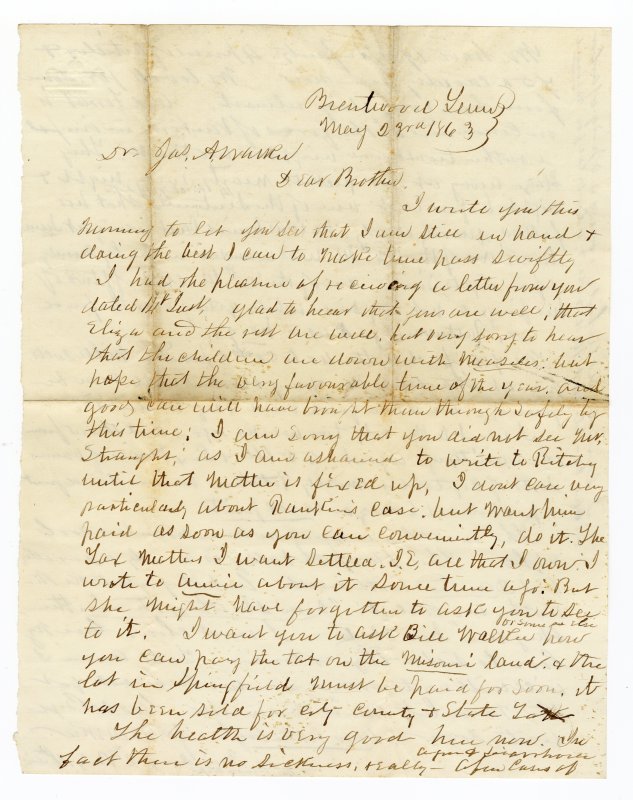 Brentwood Tenn
May 23rd 1863
Dr Jas. A Walker
Dear Brother.
I write you this
morning to let you see that I am still on hand &
doing the best I can to make time pass swiftly
I had the pleasure of receiving a letter from you
dated Inst, glad to hear that you are well, that
Eliza and the rest are well, but very sorry to hear
that the children are down with Measles; but
hope that the very favourable time of the year, and
good care will have brought them through safely by
this time; I am sorry that you did not see Mr.
Straught, as I am ashamed to write to Ritchy
until that matter is fixed up, I dont care very
particularly about Rankins case. but want him
paid as soon as you can conveniently, do it. The
Tax matters I want settled. I.E, all that I own I
wrote to Annie about it some time ago. But
she might have forgotten to ask you to see
to it. I want you to ask Bill Walker or some one else how
you can pay the tax on the Misouri land. & the
lot in Springfield must be paid for soon, it
has been sold for city county & State Tax
The health is very good here now. In
fact there is no sickness, really — a few cases of